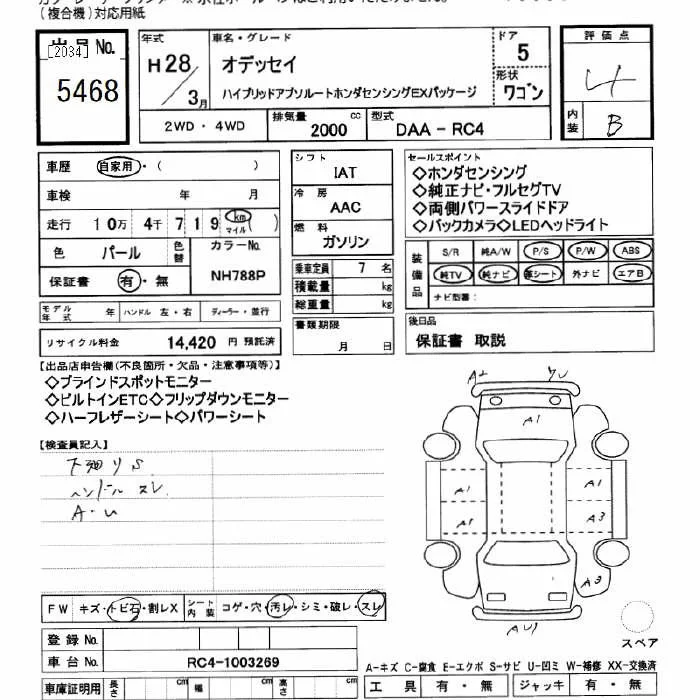 (複合機)対応用紙
出品No.
[2034]
5468
年式
H28/3月
車名・グレード
オデッセイ
ハイブリッドアブソルートホンダセンシングEXパッケージ
ドア
5
形状
ワゴン
2WD・4WD
排気量
2000 cc
型式
DAA-RC4
評価点
4
内装
B
車歴 自家用・( )
車検 年 月
走行 10万 4千 719 km マイル( )
色 パール
色替
カラーNo.
NH788P
保証書 有・無
モデル年式 年 ハンドル 左・右 ディーラー・並行
リサイクル料金 14,420 円 預託済
シフト
IAT
冷房
AAC
燃料
ガソリン
乗車定員 7 名
積載量 kg
総重量 kg
書類期限
月 日
セールスポイント
◇ホンダセンシング
◇純正ナビ・フルセグTV
◇両側パワースライドドア
◇バックカメラ◇LEDヘッドライト
装備品
S/R 純A/W P/S P/W ABS
純TV 純ナビ 革シート 外ナビ エアB
ナビ型番:
後日品
保証書 取説
【出品店申告欄(不良箇所・欠品・注意事項等)】
◇ブラインドスポットモニター
◇ビルトインETC◇フリップダウンモニター
◇ハーフレザーシート◇パワーシート
【検査員記入】
下廻りS
ハンドルスレ
A・U
FW キズ・トビ石・割レX
シート内装 コゲ・穴・汚レ・シミ・破レ・スレ
登録No.
車台No. RC4-1003269
車庫証明用 長さ cm 幅 cm 高さ cm
A1
A1
A1
A1
A3
A3
スペア
A-キズ C-腐食 E-エクボ S-サビ U-凹ミ W-補修 XX-交換済
工具 有・無 ジャッキ 有・無